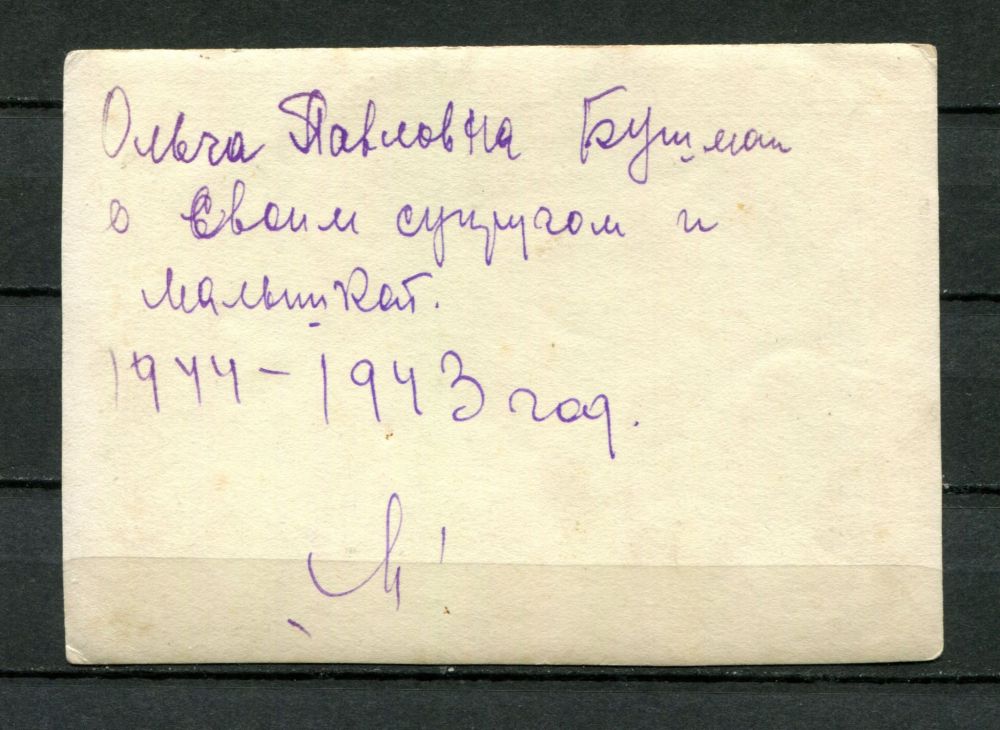 Ольга Павловна Бушман
о Своим супругом и
малышкой.
1944-1943 год.